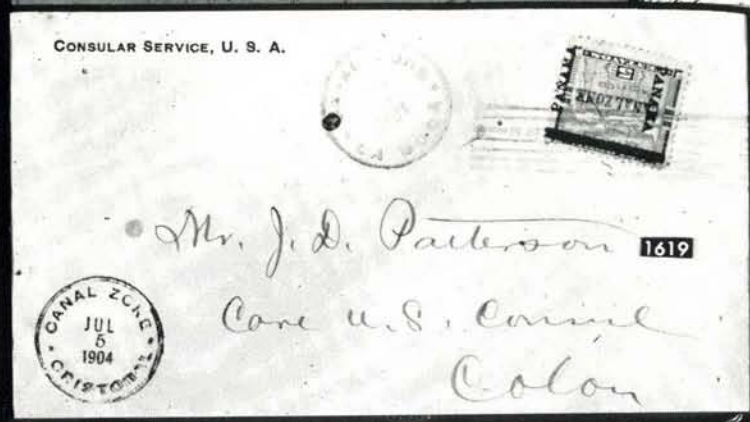 CONSULAR SERVICE, U. S. A.
PANAMA
CANAL ZONE
PANAMA
Mr. J. D. Patterson
1619
Care U. S. Consul
Colon
CANAL ZONE
JUL
5
1904
CRISTOBAL